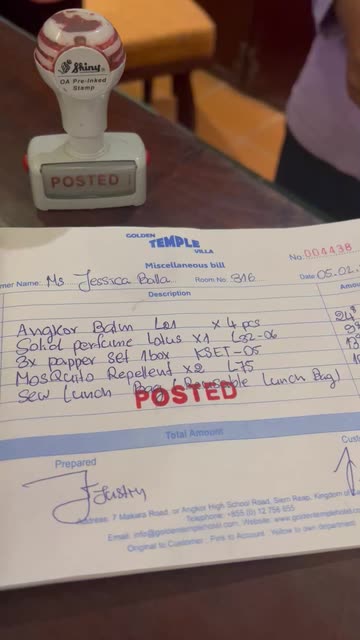 Shiny
OA Pre-Inked
Stamp
POSTED
GOLDEN
TEMPLE
VILLA
Miscellaneous bill
No. 004438
mer Name: Ms Jessica Balla Room No: 316 05.02.
Description Amou
Angkor Balm L21 x 4 pcs 24$
Solid perfume Lotus x1 L32-06
3x papper set 1box KSET-05
Mosquito Repellent x2 L75
Sew Lunch Bag (Reusable Lunch Bag)
POSTED
Total Amount
Prepared Custo
Address: 7 Makara Road, or Angkor High School Road, Siem Reap, Kingdom of
Telephone: +855 (0) 12 756 655
Email: info@goldentemplehotel.com, Website: www.goldentemplehotel.co
Original to Customer . Pink to Account . Yellow to own department